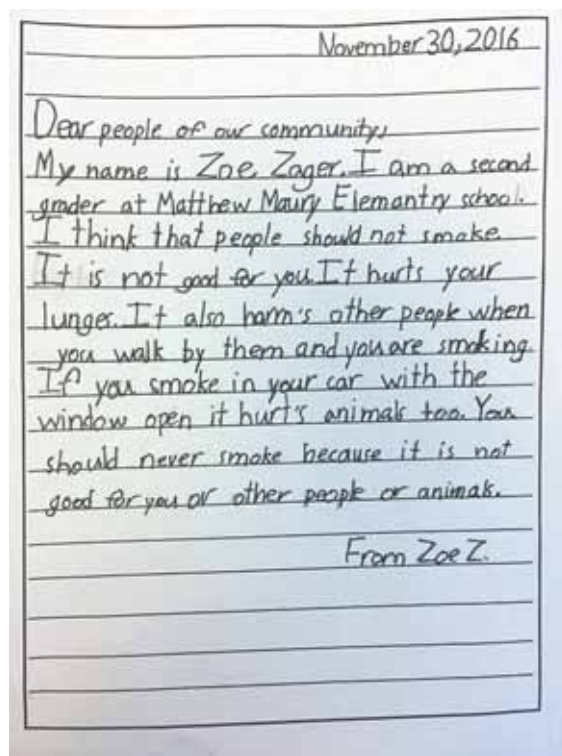 November 30, 2016
Dear people of our community,
My name is Zoe Zager. I am a second
grader at Matthew Maury Elemantry school.
I think that people should not smoke.
It is not good for you. It hurts your
lunges. It also harm's other people when
you walk by them and you are smoking.
If you smoke in your car with the
window open it hurt's animals too. You
should never smoke because it is not
good for you or other people or animals.
From Zoe Z.